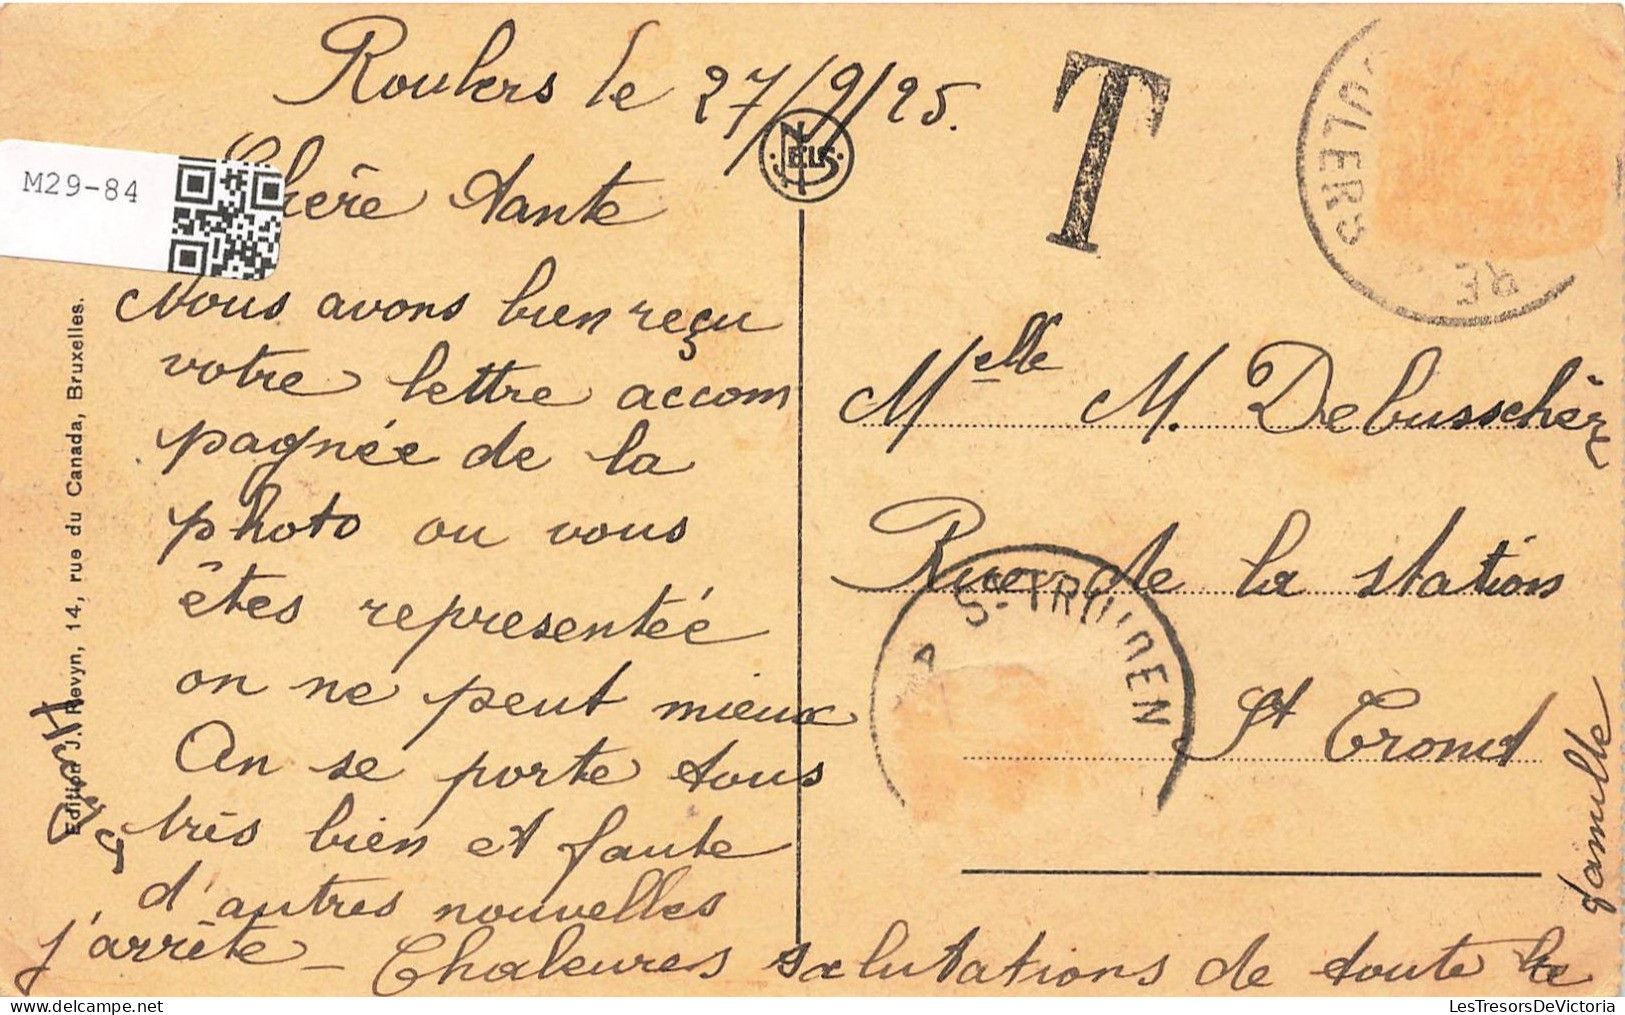 Roulers le 27/9/25.
Chère tante
Nous avons bien reçu
votre lettre accom
pagnée de la
photo ou vous
êtes representée
on ne peut mieux
On se porte tous
très bien et faute
d'autres nouvelles
j'arrête - Chaleures salutations de toute la
famille
T
NELS
ROULERS
RE
Melle M. Debusschèr
Rue de la station
St Trond
ST-TRUIDEN
Edition J. Revyn, 14, rue du Canada, Bruxelles.
M29-84
LesTresorsDeVictoria